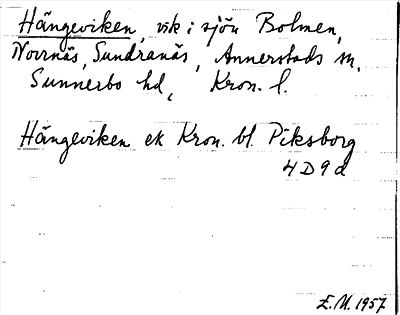 Hängeviken, vik i sjön Bolmen,
Norrnäs, Sundranäs, Annerstads sn.
Sunnerbo hd, Kron. l.
Hängeviken ek Kron. bl. Piksborg
4D9d
E.M. 1957